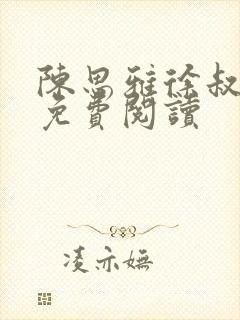 陳思雅徐叔
免費閱讀
凌亦嫵